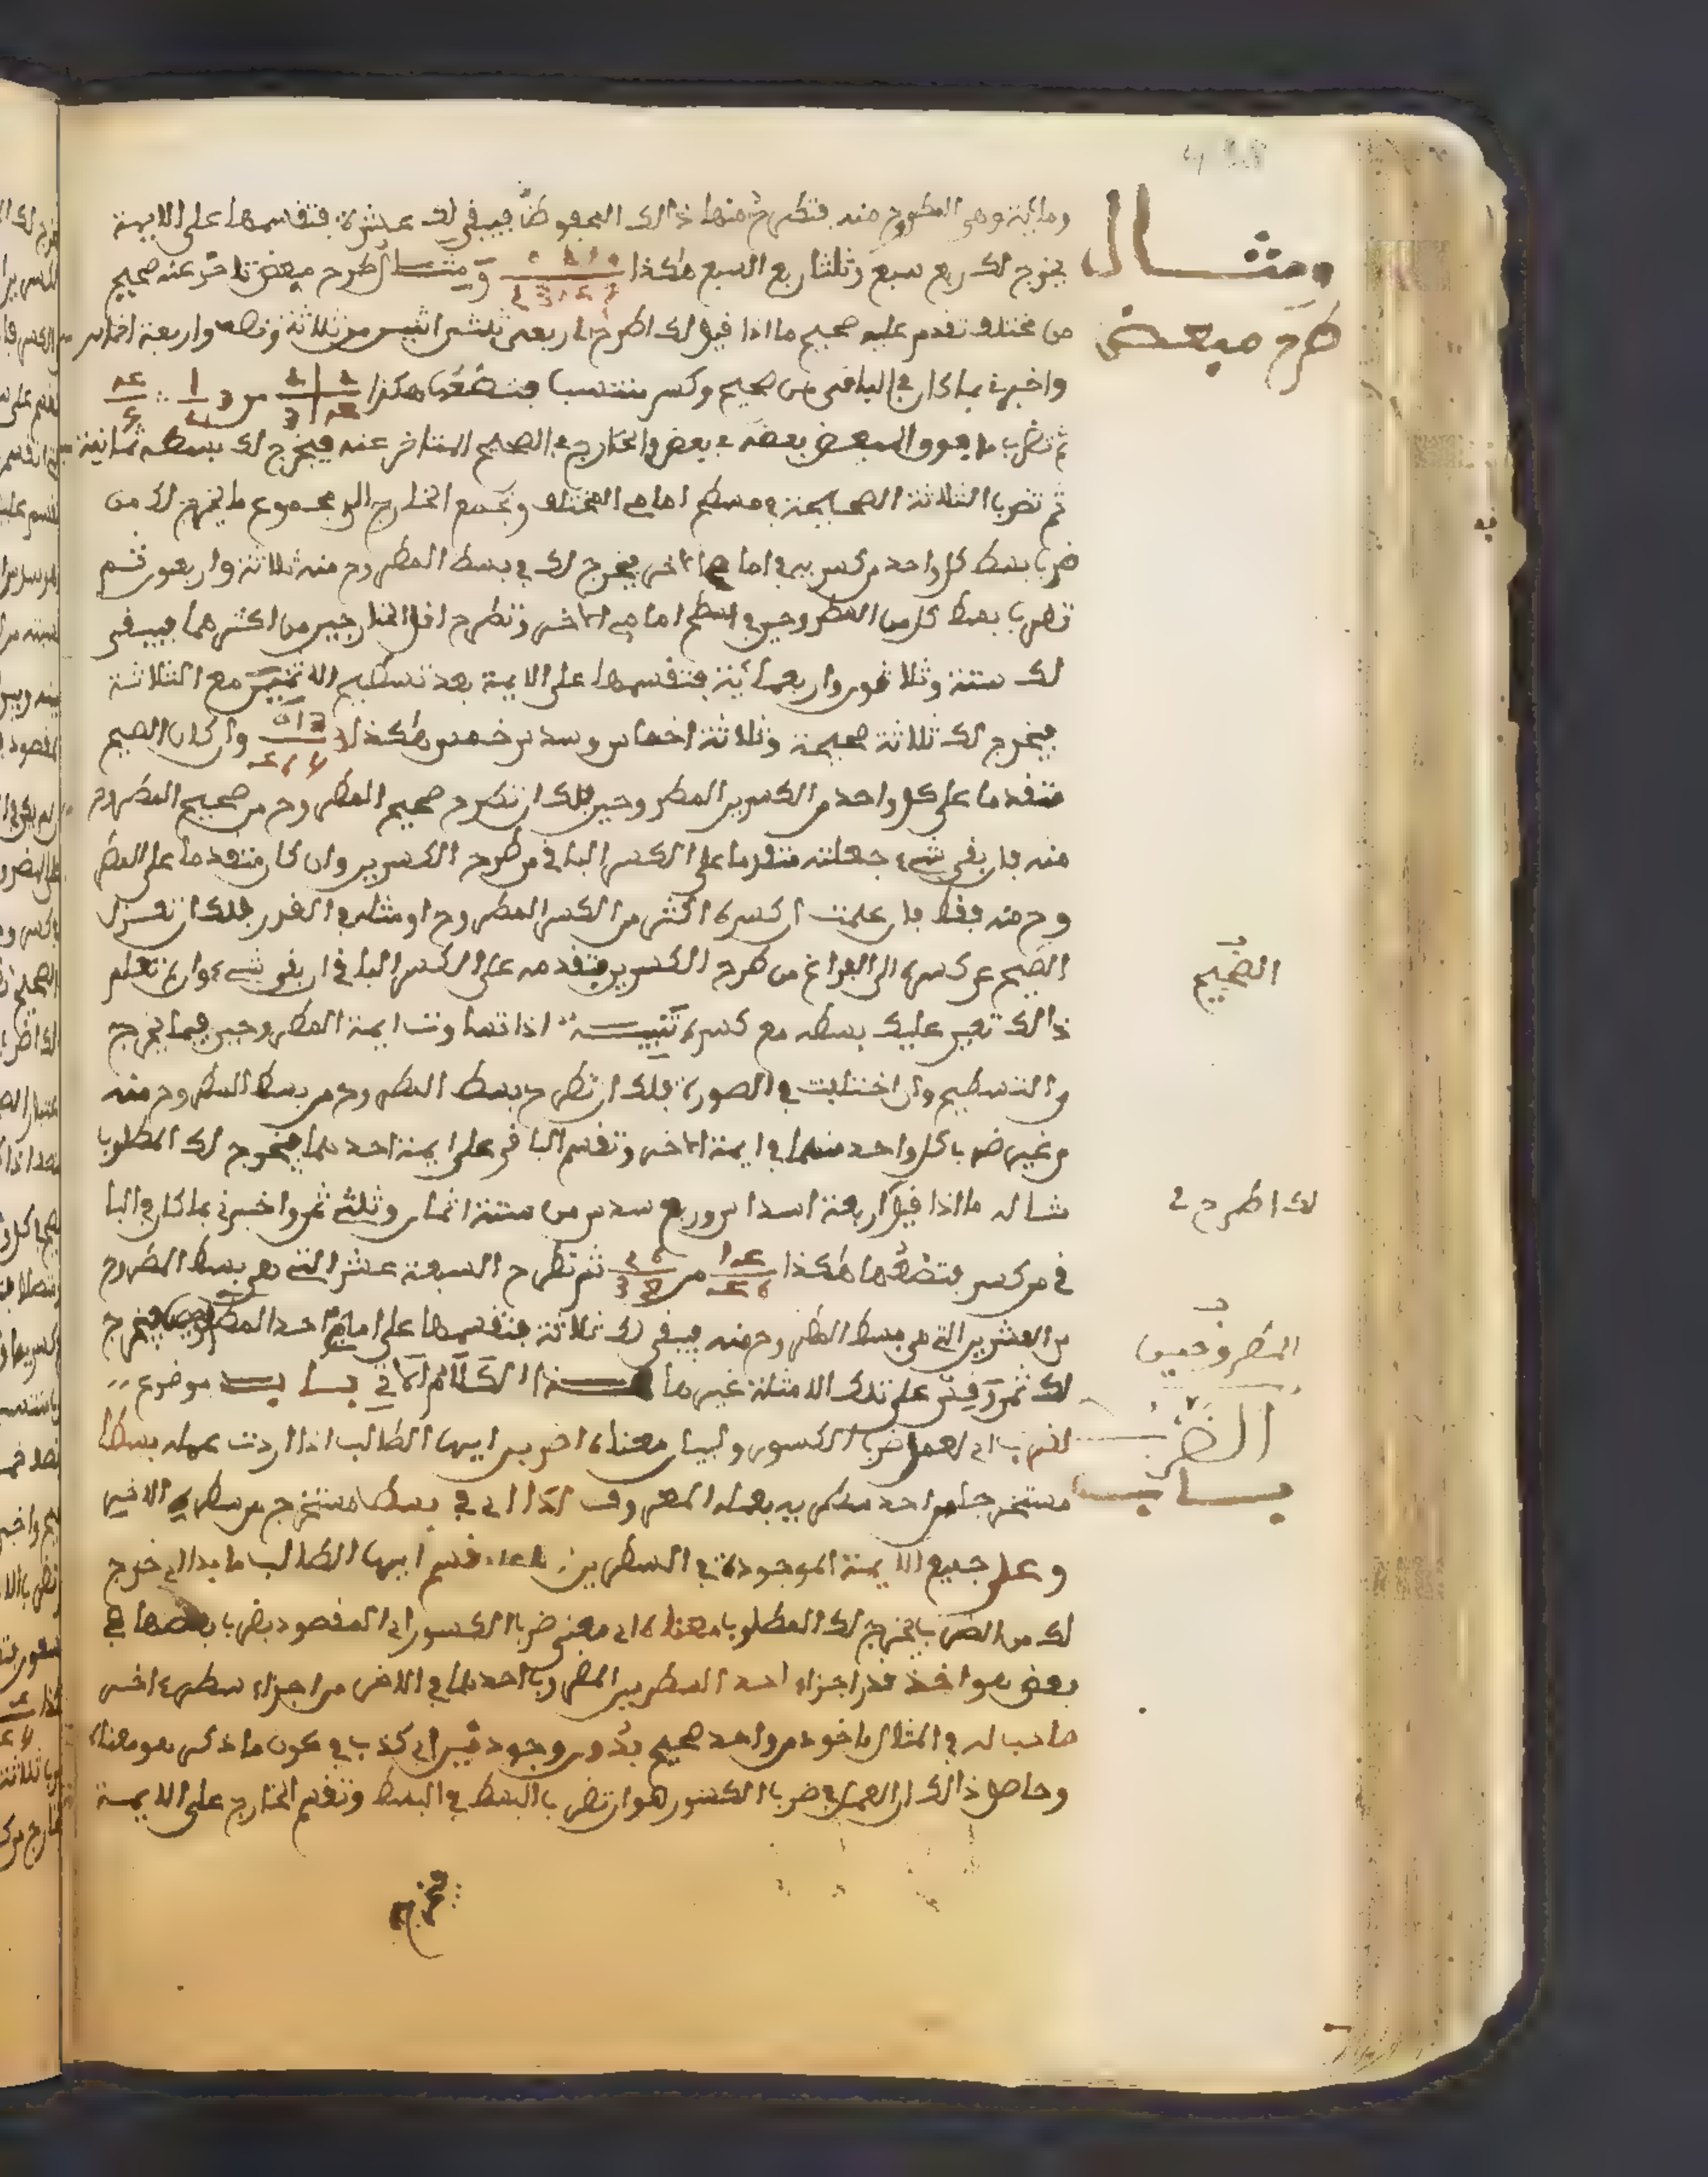 ومائية وهي المطروح منه فتطرح منها ذالك المحفوظ فيبقى لك عشرة فتقسمها على الايمة
يخرج لك ربع سبع وثلثا ربع السبع هكذا ومثال طرح مبعض تاخر عنه صحيح
من مختلف تقدم عليه صحيح ما اذا قيل لك اطرح اربعة ثلثي اثنين من ثلاثة ونصف واربعة اخماس
واخبرني بما كان في الباقي من صحيح وكسر منتسب فتضعها هكذا
ثم تضرب ما فوق المبعض بعضه في بعض والخارج في الصحيح المتاخر عنه فيخرج لك بسطه ثمانية
ثم تضرب الثلاثة الصحيحة في مسطح امامي المختلف وتجمع الخارج الى مجموع ما يخرج لك من
ضرب بسط كل واحد من كسريه في امام الاخر يخرج لك في بسط المطروح منه ثلاثة واربعون ثم
تضرب بسط كل من المطروحين في مسطح امامي الاخر وتطرح اقل الخارجين من اكثرهما فيبقى
لك ستة وثلاثون واربعمائة فتقسمها على الايمة بعد تسطيح الاثنين مع الثلاثة
فيخرج لك ثلاثة صحيحة وثلاثة اخماس وسدس خمس هكذا وان كان الصحيح
متقدما على كل واحد من الكسرين المطروحين فلك ان تطرح صحيح المطروح من صحيح المطروح
منه فان بقي شيء جعلته متقدما على الكسر الباقي من طرح الكسرين وان كان متقدما على المطر
وح منه فقط فان علمت ان كسره اكثر من الكسر المطروح او مثله في القدر فلك ان تعزل
الصحيح عن كسره الى الفراغ من طرح الكسرين فتقدمه على الكسر الباقي ان بقي شيء وان لم تعلم
ذالك تعين عليك بسطه مع كسره تنبيه اذا تساوت ايمة المطروحين فيما يخرج
من التسطيح وان اختلفت في الصورة فلك ان تطرح بسط المطروح من بسط المطروح منه
من غير ضرب كل واحد منهما في ايمة الاخر وتقسم الباقي على ايمة احدهما فيخرج لك المطلوب
مثاله ما اذا قيل اربعة اسداس وربع سدس من ستة اثمان وثلثي ثمن واخبرني بما كان في البا
قي من كسر فتضعها هكذا من ثم تطرح السبعة عشر التي هي بسط المطروح
من العشرين التي هي بسط المطروح منه فيبقى لك ثلاثة فتقسمها على امامي احد المطروحين فيخرج
لك ثمن وقس على تلك الامثلة غيرها هذا الكلام الاتي باب موضوع
لضرب اي لعمل ضرب الكسور ولبيان معناه اضرب ايها الطالب اذا اردت عمله بسطا
مستخرجا من احد سطريه بعمله المعروف لذا اي في بسط مستخرج من سطره الاخير
وعلى جميع الايمة الموجودة في السطرين فقسم ايها الطالب ما بدا اي خرج
لك من الضرب يخرج لك المطلوب معناه اي معنى ضرب الكسور اي المقصود بضرب بعضها في
بعض هو اخذ قدر اجزاء احد السطرين المضروب احدهما في الاخر من اجزاء سطر اخر
صاحب له في المثال ماخوذ من واحد صحيح بدون وجود مين اي كذب في كون ما ذكر هو معناه
وحاصل ذالك ان العمل في ضرب الكسور هو ان تضرب البسط في البسط وتقسم الخارج على الايمة
فيخرج
ومثال
طرح مبعض
الصحيح
لك اطرح لي
المطروحين
الضرب
باب